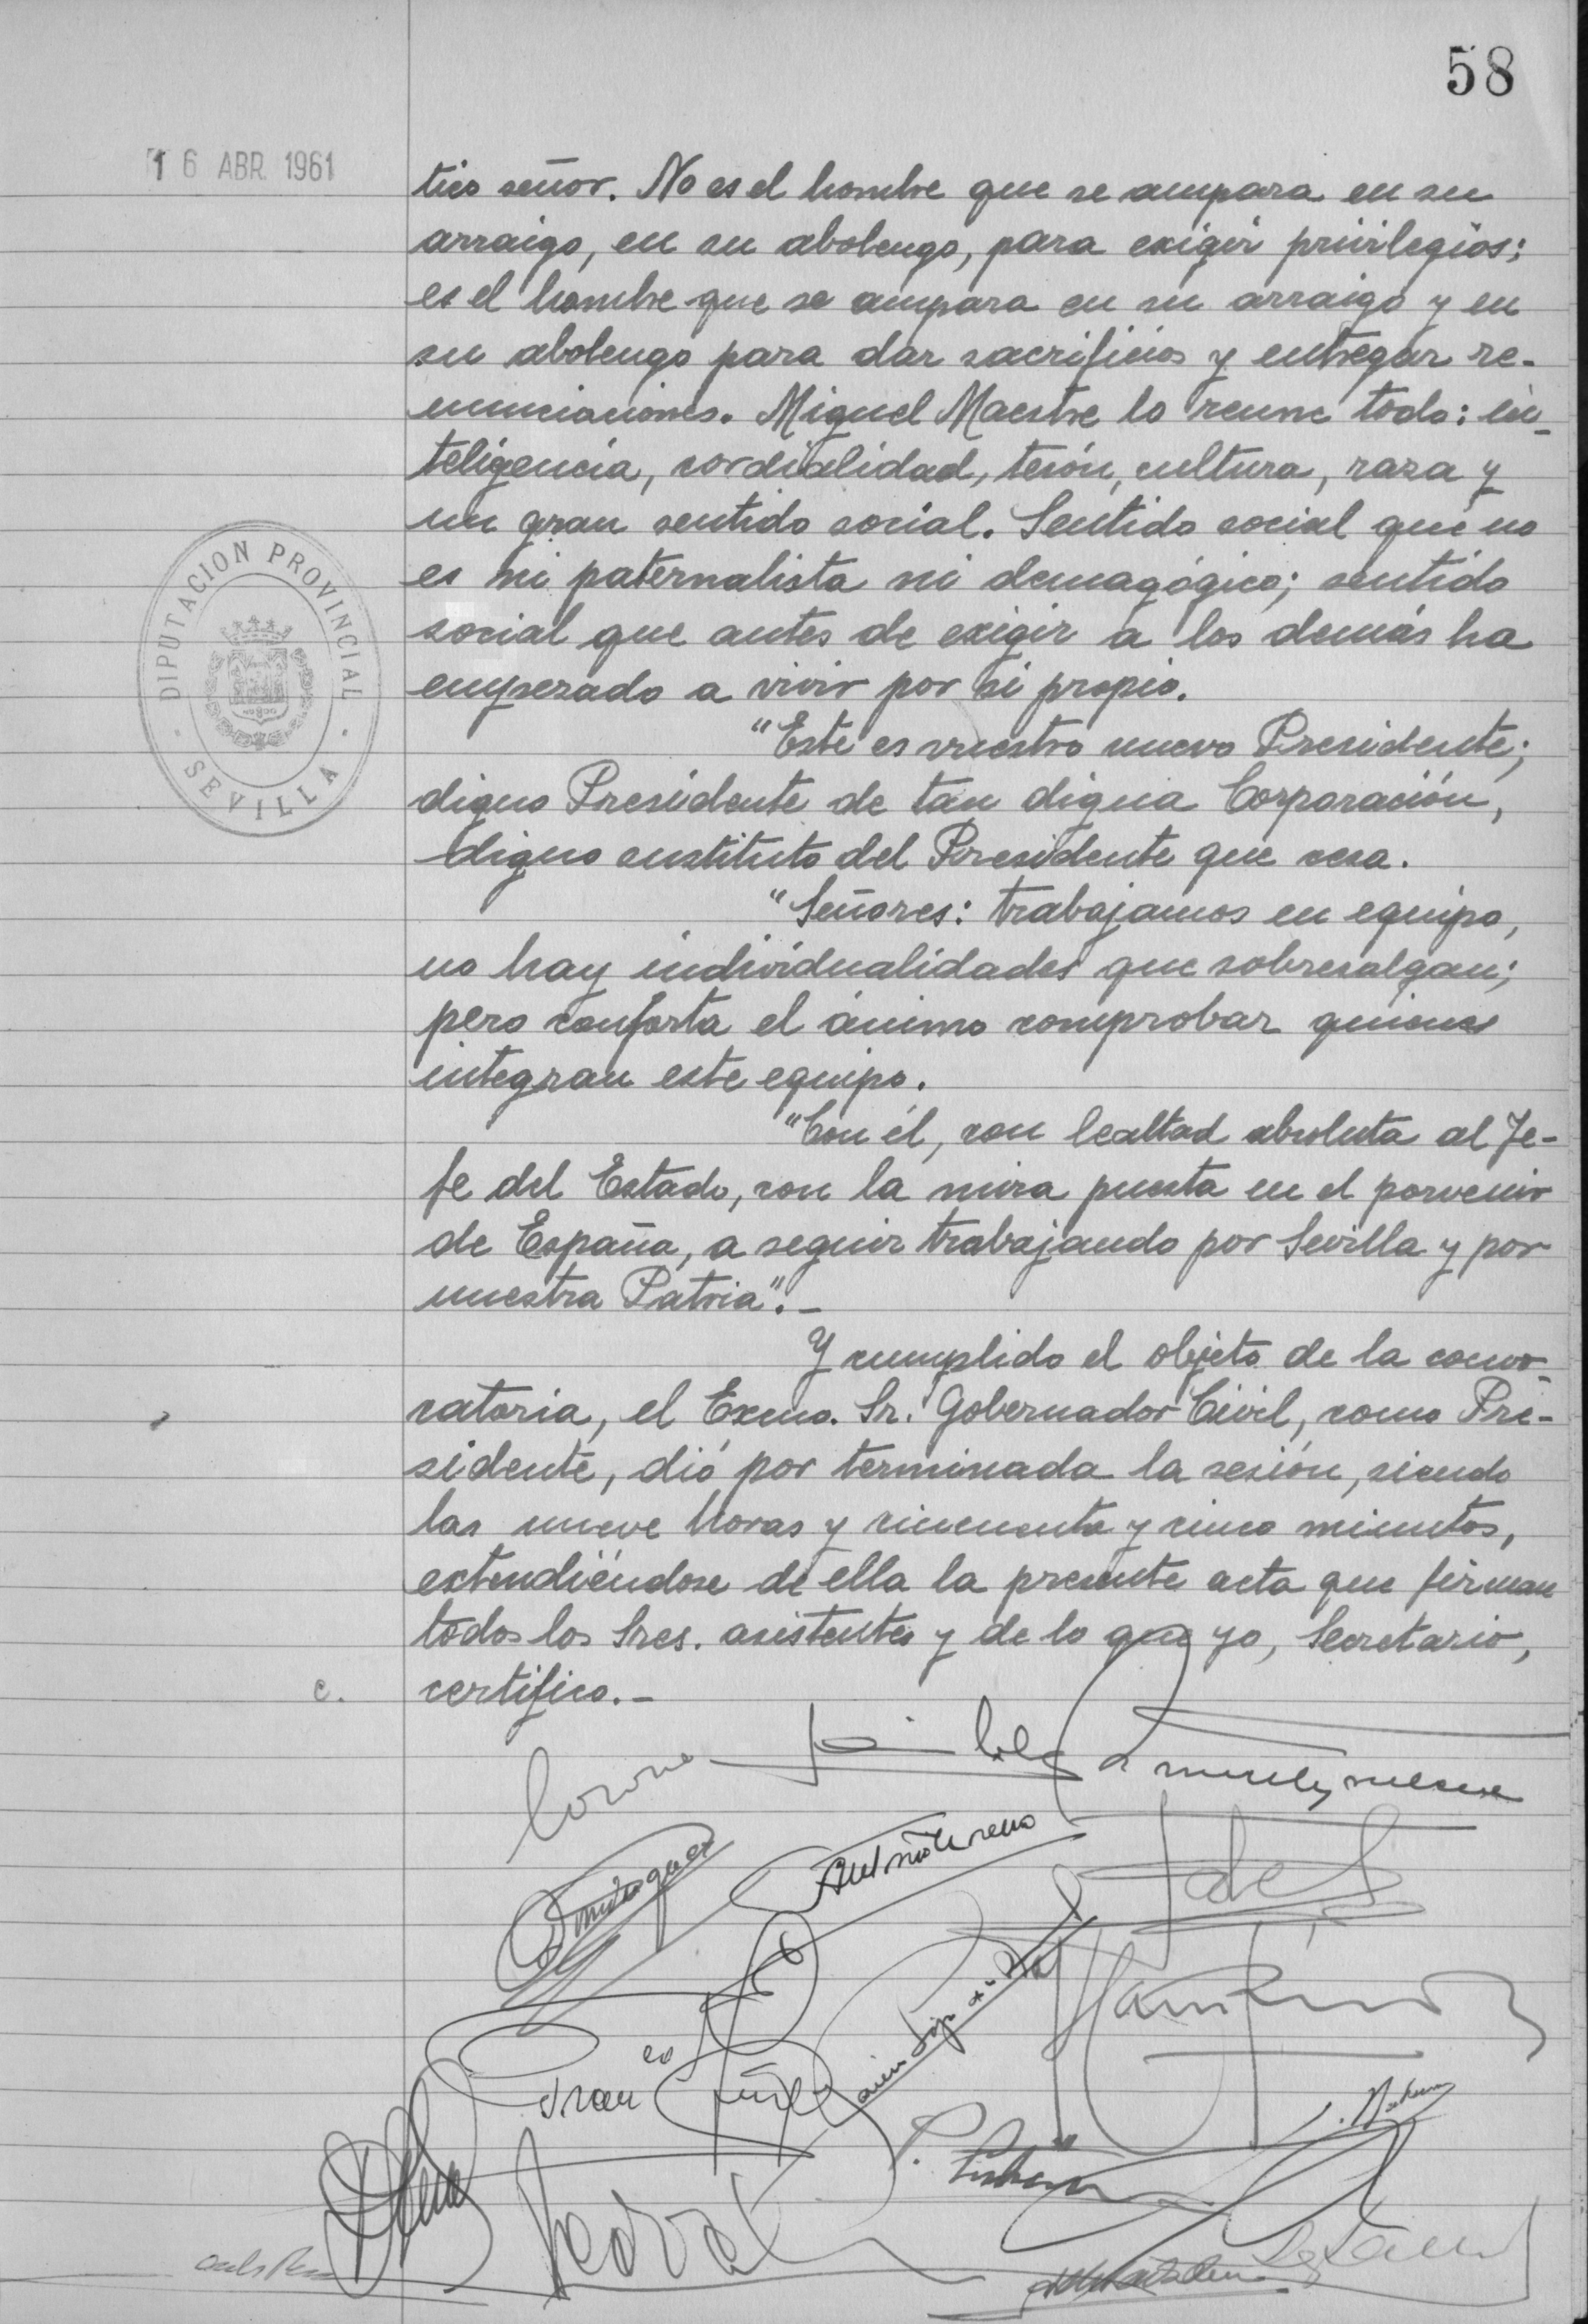 58
16 ABR. 1961
tico señor. No es el hombre que se ampara en su
arraigo, en su abolengo, para exigir privilegios;
es el hombre que se ampara en su arraigo y en
su abolengo para dar sacrificios y entregar re-
nunciaciones. Miguel Maestre lo reune todo: in-
teligencia, cordialidad, tesón, cultura, raza y
un gran sentido social. Sentido social que no
es ni paternalista ni demagógico; sentido
social que antes de exigir a los demás ha
empezado a vivir por si propio.
DIPUTACION PROVINCIAL
- SEVILLA -
"Este es vuestro nuevo Presidente;
digno Presidente de tan digna Corporación,
digno sustituto del Presidente que cesa.
"Señores: trabajamos en equipo,
no hay individualidades que sobresalgan;
pero conforta el ánimo comprobar quienes
integran este equipo.
"Con él, con lealtad absoluta al Je-
fe del Estado, con la mira puesta en el porvenir
de España, a seguir trabajando por Sevilla y por
nuestra Patria".-
Y cumplido el objeto de la convo-
catoria, el Excmo. Sr. Gobernador Civil, como Pre-
sidente, dió por terminada la sesión, siendo
las nueve horas y cincuenta y cinco minutos,
extendiéndose de ella la presente acta que firman
todos los Sres. asistentes y de lo que yo, Secretario,
c.
certifico.-